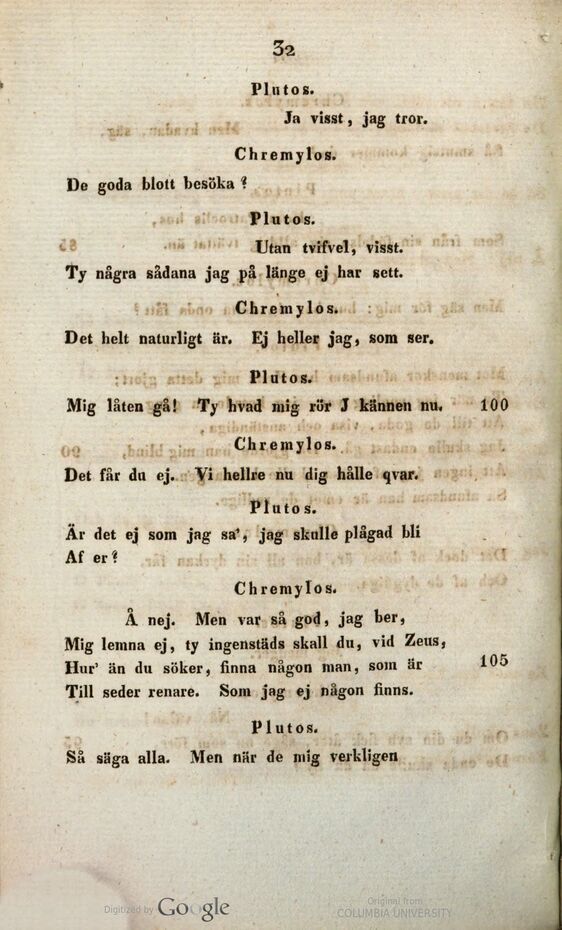 32
Plutos.
Ja visst, jag tror.
Chremylos.
De goda blott besöka?
Plutos.
Utan tvifvel, visst.
Ty några sådana jag på länge ej har sett.
Chremylos.
Det helt naturligt är. Ej heller jag, som ser.
Plutos.
Mig låten gå! Ty hvad mig rör J kännen nu. 100
Chremylos.
Det får du ej. Vi hellre nu dig hålle qvar.
Plutos.
Är det ej som jag sa', jag skulle plågad bli
Af er?
Chremylos.
Å nej. Men var så god, jag ber,
Mig lemna ej, ty ingenstäds skall du, vid Zeus,
Hur' än du söker, finna någon man, som är 105
Till seder renare. Som jag ej någon finns.
Plutos.
Så säga alla. Men när de mig verkligen
Digitized by Google
Original from
COLUMBIA UNIVERSITY